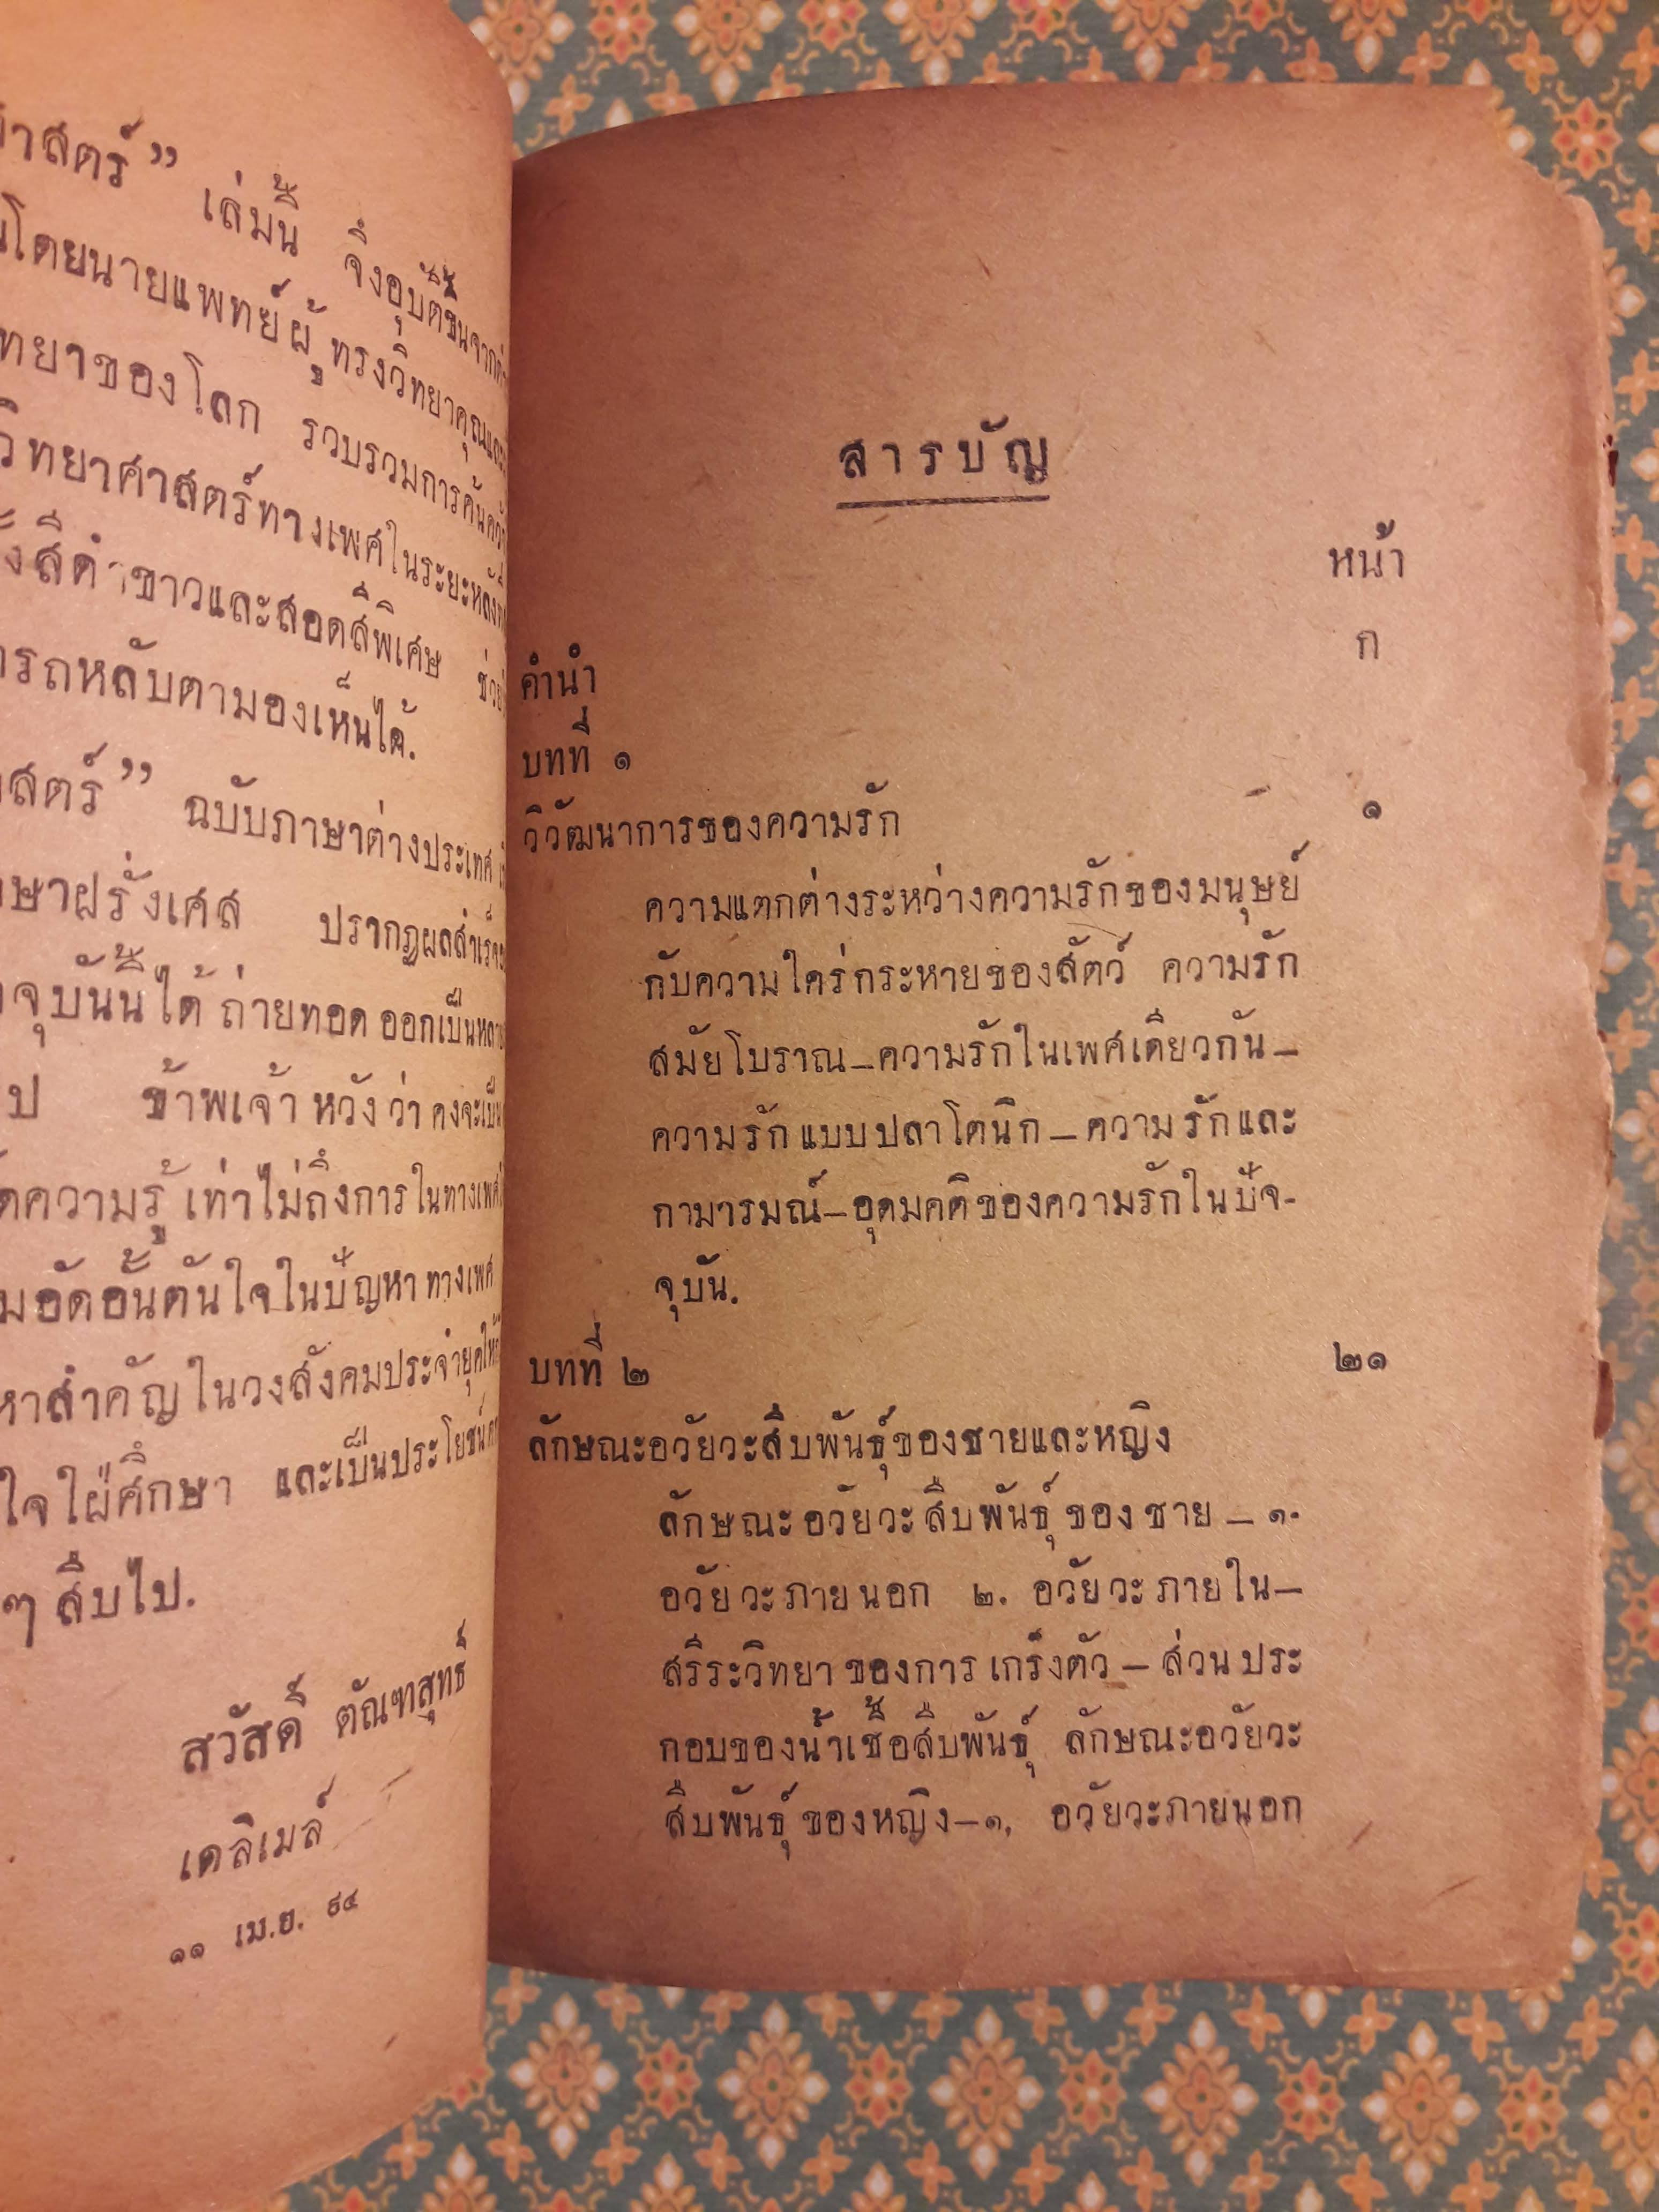 าสตร์” เล่มนี้ จึงอุบัติขึ้นจาก
โดยนายแพทย์ผู้ทรงวิทยาคุณและ
ทยาของโลก รวบรวมการค้นคว้า
วิทยาศาสตร์ทางเพศในระยะหลัง
สีดำขาวและสอดสีพิเศษ ช่วย
ารถหลับตามองเห็นได้.
สตร์” ฉบับภาษาต่างประเทศ
ษาฝรั่งเศส ปรากฏผลสำเร็จ
จุบันนี้ได้ถ่ายทอดออกเป็นหลาย
ป ข้าพเจ้าหวังว่า คงจะเป็น
ความรู้เท่าไม่ถึงการในทางเพศ
มอัดอั้นตันใจในปัญหาทางเพศ
หาสำคัญในวงสังคมประจำยุค
ใจใฝ่ศึกษา และเป็นประโยชน์
ๆ สืบไป.
สวัสดิ์ ตัณฑสุทธิ์
เดลิเมล์
๑๑ เม.ย. ๙๔
สารบัญ
หน้า
คำนำ ก
บทที่ ๑
วิวัฒนาการของความรัก ๑
ความแตกต่างระหว่างความรักของมนุษย์
กับความใคร่กระหายของสัตว์ ความรัก
สมัยโบราณ—ความรักในเพศเดียวกัน—
ความรักแบบปลาโตนิก—ความรักและ
กามารมณ์—อุดมคติของความรักในปัจ-
จุบัน.
บทที่ ๒ ๒๑
ลักษณะอวัยวะสืบพันธุ์ของชายและหญิง
ลักษณะอวัยวะสืบพันธุ์ของชาย—๑.
อวัยวะภายนอก ๒. อวัยวะภายใน—
สรีระวิทยาของการเกร็งตัว—ส่วนประ
กอบของน้ำเชื้อสืบพันธุ์ ลักษณะอวัยวะ
สืบพันธุ์ของหญิง—๑. อวัยวะภายนอก